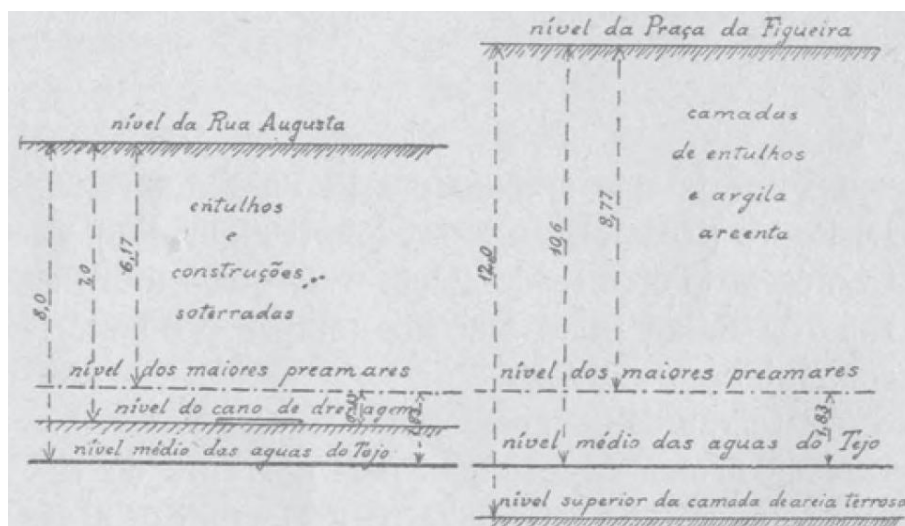 nível da Rua Augusta
8,0
7,0
6,17
entulhos
e
construções
soterradas
nível dos maiores preamares
nível do cano de drenagem
nível médio das aguas do Tejo
nível da Praça da Figueira
12,0
10,6
8,77
camadas
de entulhos
e argila
areenta
nível dos maiores preamares
1,83
nível médio das aguas do Tejo
nível superior da camada de areia terrosa